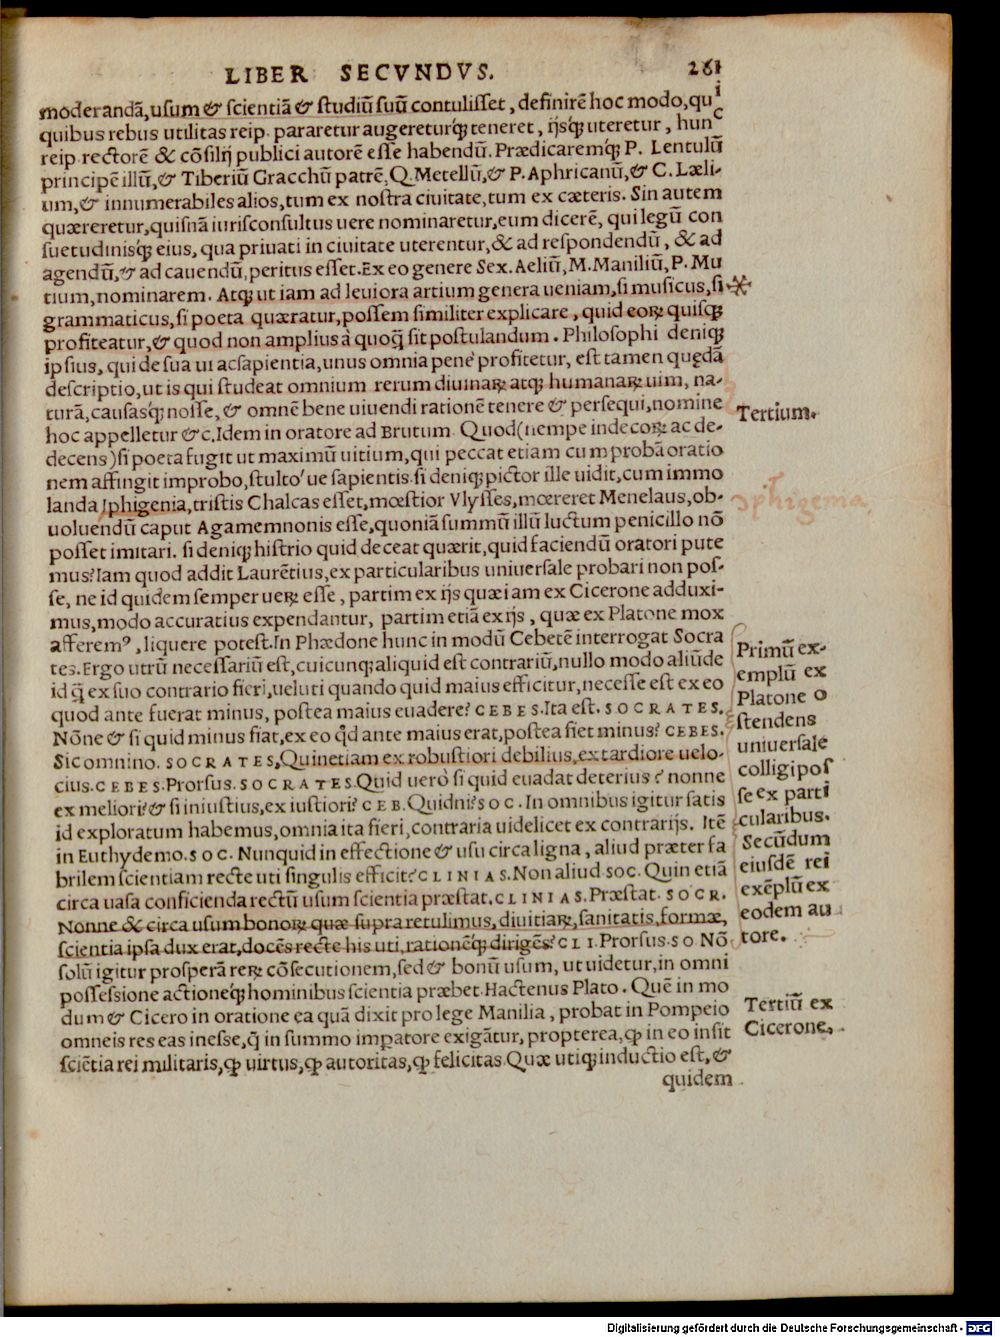 LIBER SECVNDVS. 261
moderandã, usum & scientiã & studiũ suũ contulisset, definirẽ hoc modo, qui
quibus rebus utilitas reip. pararetur augereturq́; teneret, ijsq́; uteretur, hunc
reip rectorẽ & cõsilij publici autorẽ esse habendũ. Prædicaremq́; P. Lentulũ
principẽ illũ, & Tiberiũ Gracchũ patrẽ, Q. Metellũ, & P. Aphricanũ, & C. Læli-
um, & innumerabiles alios, tum ex nostra ciuitate, tum ex cæteris. Sin autem
quæreretur, quisnã iurisconsultus uere nominaretur, eum dicerẽ, qui legũ con
suetudinisq́; eius, qua priuati in ciuitate uterentur, & ad respondendũ, & ad
agendũ, & ad cauendũ, peritus esset. Ex eo genere Sex. Aeliũ, M. Maniliũ, P. Mu
tium, nominarem. Atq; ut iam ad leuiora artium genera ueniam, si musicus, si
grammaticus, si poeta quæratur, possem similiter explicare, quid eoꝝ quisq;
profiteatur, & quod non amplius à quoq̃ sit postulandum. Philosophi deniq;
ipsius, qui de sua ui ac sapientia, unus omnia penè profitetur, est tamen quędã
descriptio, ut is qui studeat omnium rerum diuinaꝝ atq; humanaꝝ uim, na-
turã, causasq́; nosse, & omnẽ bene uiuendi rationẽ tenere & persequi, nomine
hoc appelletur & c. Idem in oratore ad Brutum. Quod (nempe indecoꝝ ac de-
decens) si poeta fugit ut maximũ uitium, qui peccat etiam cum probã oratio
nem affingit improbo, stulto ́ue sapientis. si deniq; pictor ille uidit, cum immo
landa Iphigenia, tristis Chalcas esset, mœstior Vlysses, mœreret Menelaus, ob-
uoluendũ caput Agamemnonis esse, quoniã summũ illũ luctum penicillo nõ
posset imitari. si deniq; histrio quid deceat quærit, quid faciendũ oratori pute
mus? Iam quod addit Laurẽtius, ex particularibus uniuersale probari non pos-
se, ne id quidem semper ueꝝ esse, partim ex ijs quæ iam ex Cicerone adduxi-
mus, modo accuratius expendantur, partim etiã ex ijs, quæ ex Platone mox
afferemꝰ, liquere potest. In Phædone hunc in modũ Cebetẽ interrogat Socra
tes. Ergo utrũ necessariũ est, cuicunq; aliquid est contrariũ, nullo modo aliũde
id q̃ ex suo contrario fieri, ueluti quando quid maius efficitur, necesse est ex eo
quod ante fuerat minus, postea maius euadere? CEBES. Ita est. SOCRATES.
Nõne & si quid minus fiat, ex eo q̃d ante maius erat, postea fiet minus? CEBES.
Sic omnino. SOCRATES. Quinetiam ex robustiori debilius, ex tardiore uelo-
cius. CEBES. Prorsus. SOCRATES. Quid uerò si quid euadat deterius? nonne
ex meliori? & si iniustius, ex iustiori? CEB. Quidni? SOC. In omnibus igitur satis
id exploratum habemus, omnia ita fieri, contraria uidelicet ex contrarijs. Itẽ
in Euthydemo. SOC. Nunquid in effectione & usu circa ligna, aliud præter fa
brilem scientiam recte uti singulis efficit? CLINIAS. Non aliud. SOC. Quin etiã
circa uasa conficienda rectũ usum scientia præstat. CLINIAS. Præstat. SOCR.
Nonne & circa usum bonoꝝ quæ supra retulimus, diuitiaꝝ, sanitatis, formæ,
scientia ipsa dux erat, docẽs recte his uti, rationẽq́; dirigẽs? CLI. Prorsus. SO. Nõ
solũ igitur prosperã reꝝ cõsecutionem, sed & bonũ usum, ut uidetur, in omni
possessione actioneq́; hominibus scientia præbet. Hactenus Plato. Quẽ in mo
dum & Cicero in oratione ea quã dixit pro lege Manilia, probat in Pompeio
omneis res eas inesse, q̃ in summo impatore exigãtur, propterea, ꝙ in eo insit
sciẽtia rei militaris, ꝙ uirtus, ꝙ autoritas, ꝙ felicitas. Quæ utiq; inductio est, &
quidem
Tertium.
Iphigenia
Primũ ex-
emplũ ex
Platone o
stendens
uniuersale
colligi pos
se ex parti
cularibus.
Secũdum
eiusdẽ rei
exẽplũ ex
eodem au
tore.
Tertiũ ex
Cicerone.
Digitalisierung gefördert durch die Deutsche Forschungsgemeinschaft - DFG